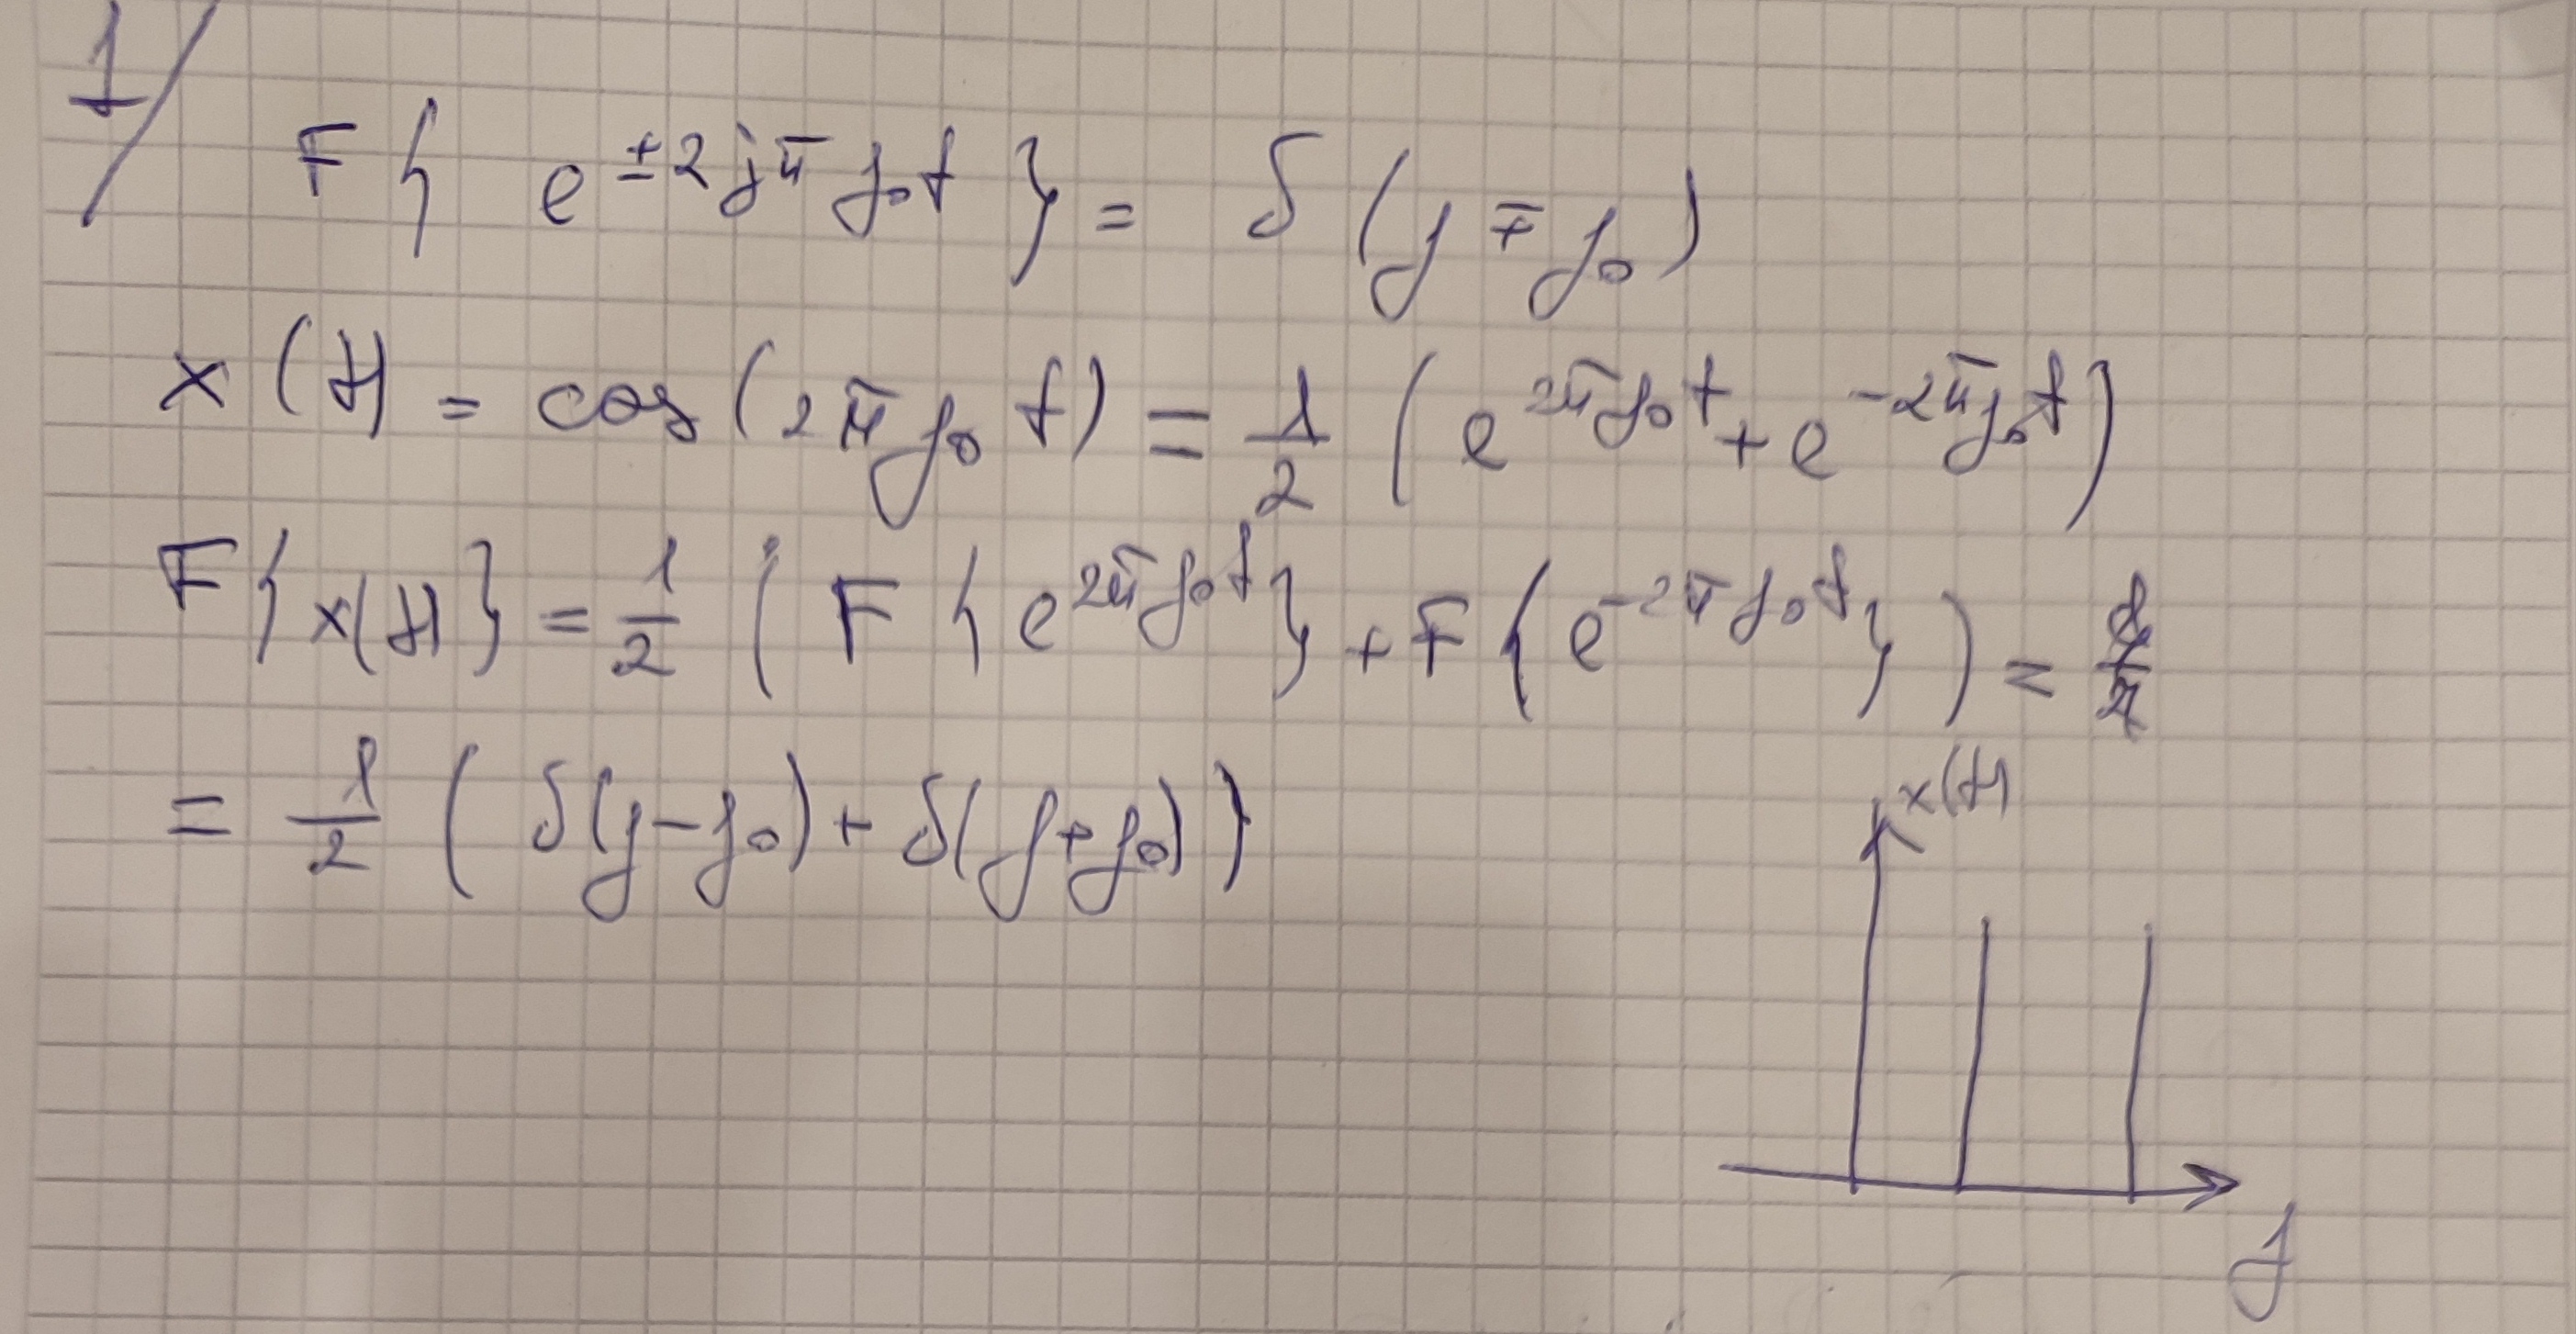 1/
F{ e^{±2jπf₀t} } = δ(f ∓ f₀)
x(t) = cos(2πf₀t) = 1/2 (e^{2πf₀t} + e^{-2πf₀t})
F{x(t)} = 1/2 (F{e^{2πf₀t}} + F{e^{-2πf₀t}}) =
= 1/2 (δ(f-f₀) + δ(f+f₀))
x(t)
f